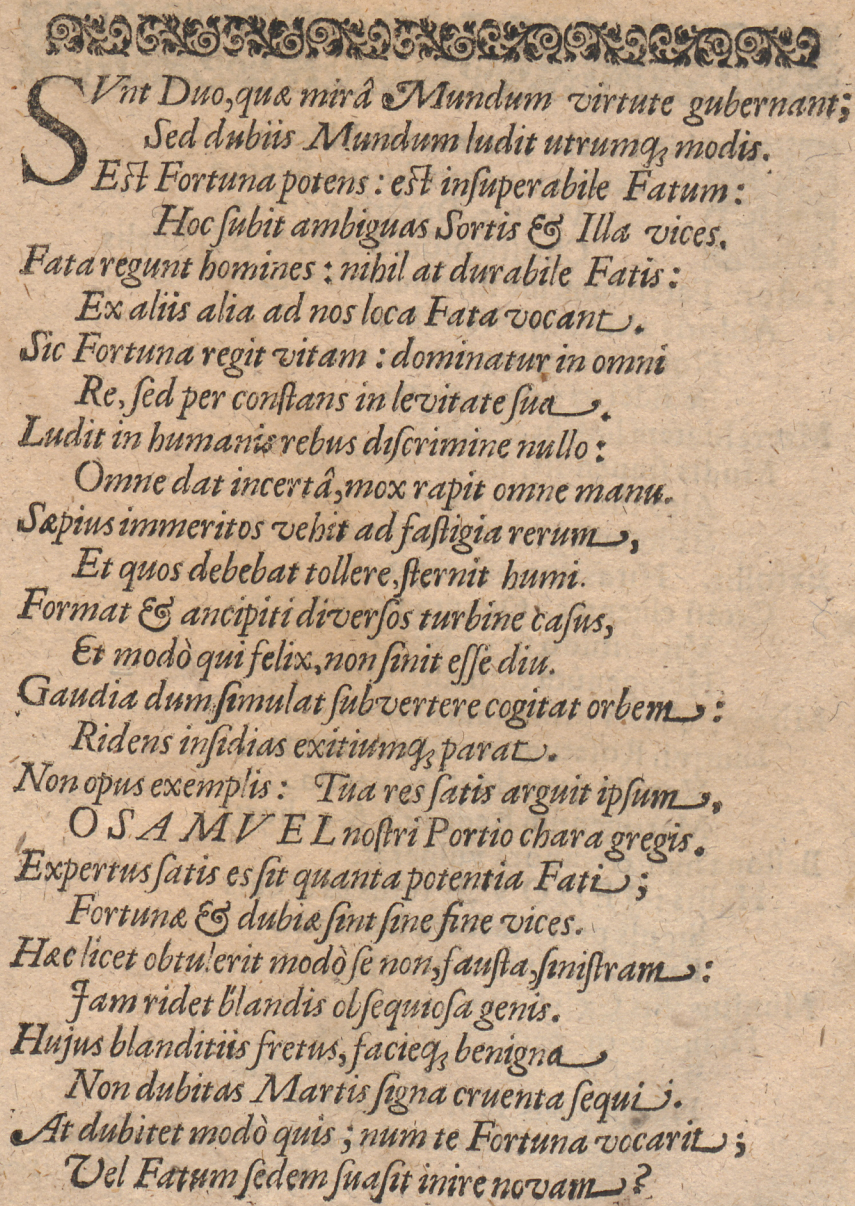 SVnt Duo, quæ mirâ Mundum virtute gubernant;
Sed dubiis Mundum ludit utrumq; modis.
Est Fortuna potens: est insuperabile Fatum:
Hoc subit ambiguas Sortis & Illa vices.
Fata regunt homines: nihil at durabile Fatis:
Ex aliis alia ad nos loca Fata vocant.
Sic Fortuna regit vitam: dominatur in omni
Re, sed per constans in levitate sua.
Ludit in humanis rebus discrimine nullo:
Omne dat incertâ, mox rapit omne manu.
Sæpius immeritos vehit ad fastigia rerum,
Et quos debebat tollere, sternit humi.
Format & ancipiti diversos turbine casus,
Et modò qui felix, non sinit esse diu.
Gaudia dum simulat subvertere cogitat orbem:
Ridens insidias exitiumq; parat.
Non opus exemplis: Tua res satis arguit ipsum,
O SAMVEL nostri Portio chara gregis.
Expertus satis es sit quanta potentia Fati;
Fortunæ & dubiæ sint sine fine vices.
Hæc licet obtulerit modò se non, fausta, sinistram:
Jam ridet blandis obsequiosa genis.
Hujus blanditiis fretus, facieq; benigna
Non dubitas Martis signa cruenta sequi.
At dubitet modò quis; num te Fortuna vocarit;
Vel Fatum sedem suasit inire novam?